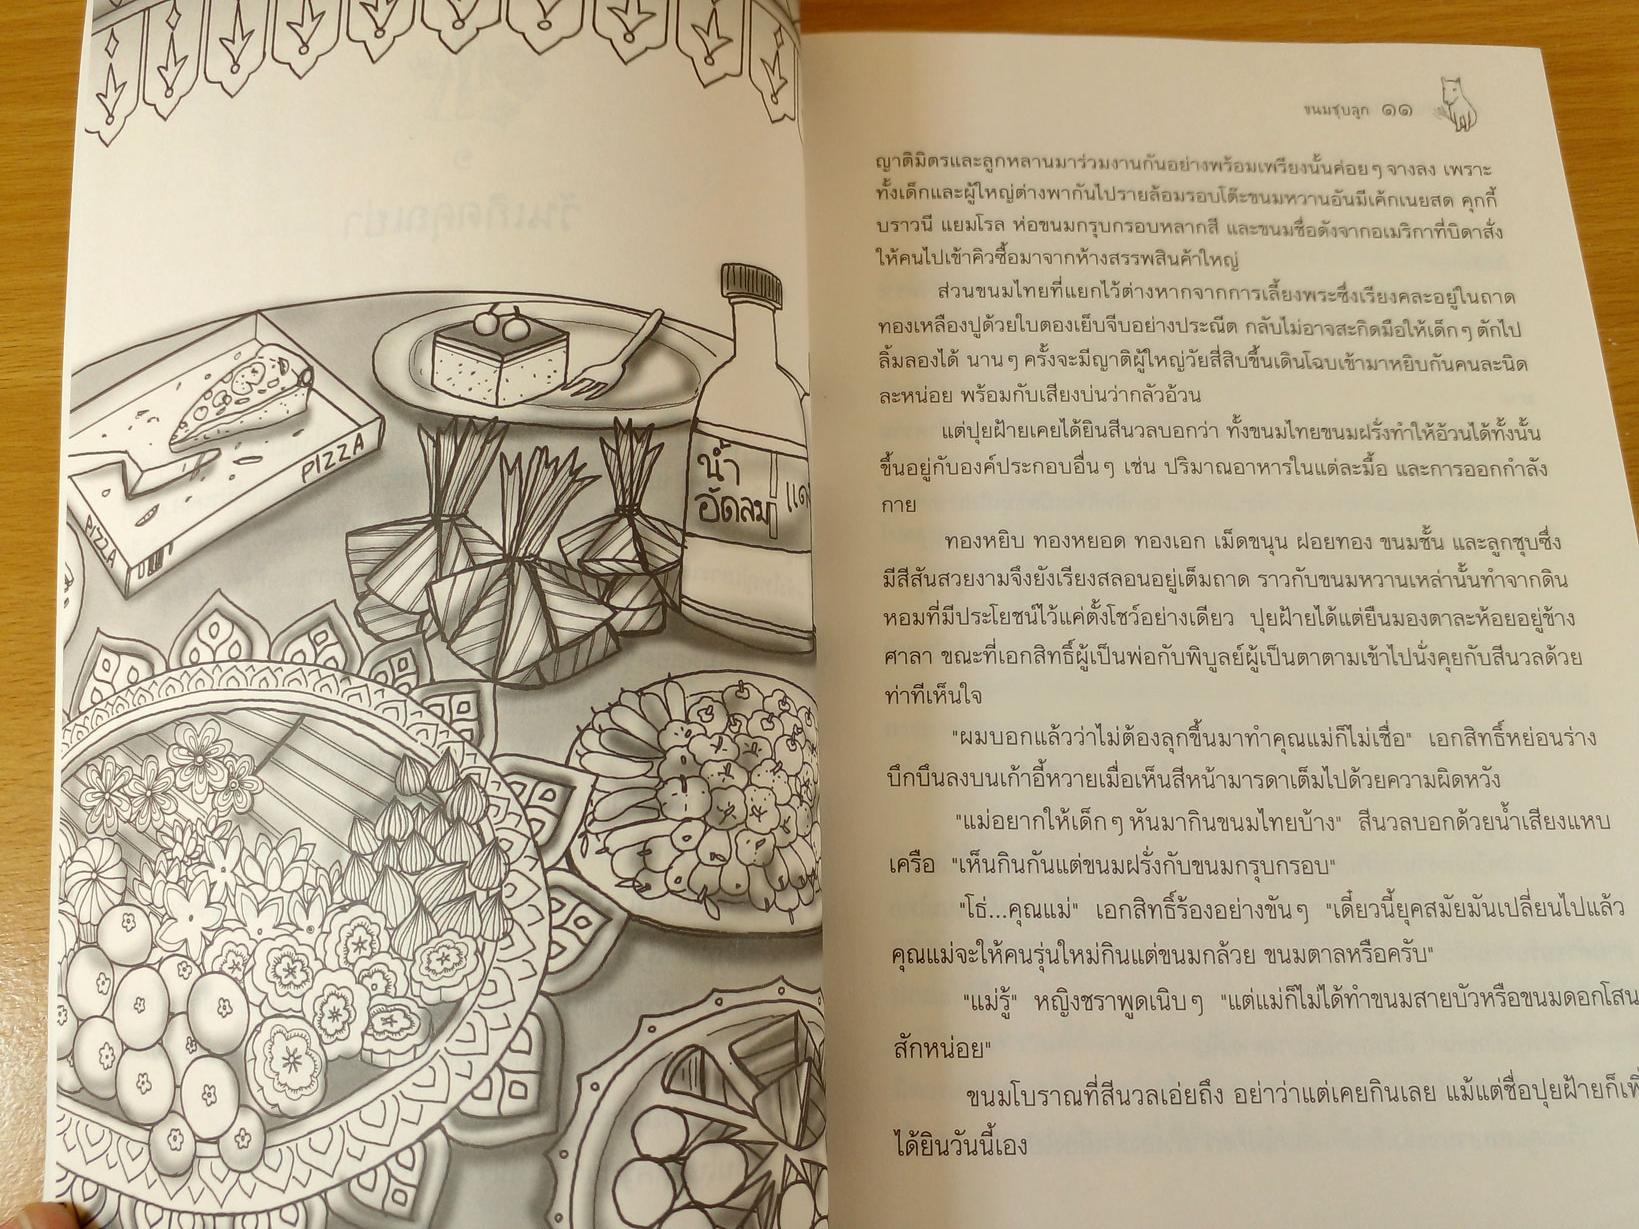 PIZZA
PIZZA
น้ำ
อัดลม
แดง
ขนมชุบลูก ๑๑
ญาติมิตรและลูกหลานมาร่วมงานกันอย่างพร้อมเพรียงนั้นค่อยๆ จางลง เพราะ
ทั้งเด็กและผู้ใหญ่ต่างพากันไปรายล้อมรอบโต๊ะขนมหวานอันมีเค้กเนยสด คุกกี้
บราวนี แยมโรล ห่อขนมกรุบกรอบหลากสี และขนมชื่อดังจากอเมริกาที่บิดาสั่ง
ให้คนไปเข้าคิวซื้อมาจากห้างสรรพสินค้าใหญ่
ส่วนขนมไทยที่แยกไว้ต่างหากจากการเลี้ยงพระซึ่งเรียงคละอยู่ในถาด
ทองเหลืองปูด้วยใบตองเย็บจีบอย่างประณีต กลับไม่อาจสะกิดมือให้เด็กๆ ตักไป
ลิ้มลองได้ นานๆ ครั้งจะมีญาติผู้ใหญ่วัยสี่สิบขึ้นเดินโฉบเข้ามาหยิบกันคนละนิด
ละหน่อย พร้อมกับเสียงบ่นว่ากลัวอ้วน
แต่ปุยฝ้ายเคยได้ยินสีนวลบอกว่า ทั้งขนมไทยขนมฝรั่งทำให้อ้วนได้ทั้งนั้น
ขึ้นอยู่กับองค์ประกอบอื่นๆ เช่น ปริมาณอาหารในแต่ละมื้อ และการออกกำลัง
กาย
ทองหยิบ ทองหยอด ทองเอก เม็ดขนุน ฝอยทอง ขนมชั้น และลูกชุบซึ่ง
มีสีสันสวยงามจึงยังเรียงสลอนอยู่เต็มถาด ราวกับขนมหวานเหล่านั้นทำจากดิน
หอมที่มีประโยชน์ไว้แค่ตั้งโชว์อย่างเดียว ปุยฝ้ายได้แต่ยืนมองตาละห้อยอยู่ข้าง
ศาลา ขณะที่เอกสิทธิ์ผู้เป็นพ่อกับพิบูลย์ผู้เป็นตาตามเข้าไปนั่งคุยกับสีนวลด้วย
ท่าทีเห็นใจ
"ผมบอกแล้วว่าไม่ต้องลุกขึ้นมาทำคุณแม่ก็ไม่เชื่อ" เอกสิทธิ์หย่อนร่าง
บึกบึนลงบนเก้าอี้หวายเมื่อเห็นสีหน้ามารดาเต็มไปด้วยความผิดหวัง
"แม่อยากให้เด็กๆ หันมากินขนมไทยบ้าง" สีนวลบอกด้วยน้ำเสียงแหบ
เครือ "เห็นกินกันแต่ขนมฝรั่งกับขนมกรุบกรอบ"
"โธ่...คุณแม่" เอกสิทธิ์ร้องอย่างขันๆ "เดี๋ยวนี้ยุคสมัยมันเปลี่ยนไปแล้ว
คุณแม่จะให้คนรุ่นใหม่กินแต่ขนมกล้วย ขนมตาลหรือครับ"
"แม่รู้" หญิงชราพูดเนิบๆ "แต่แม่ก็ไม่ได้ทำขนมสายบัวหรือขนมดอกโสน
สักหน่อย"
ขนมโบราณที่สีนวลเอ่ยถึง อย่าว่าแต่เคยกินเลย แม้แต่ชื่อปุยฝ้ายก็เพิ่
ได้ยินวันนี้เอง